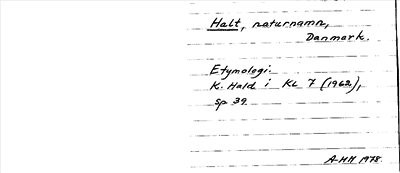 Halt, naturnamn,
Danmark.
Etymologi:
K. Hald i KL 7 (1962),
sp 39.
A-MH 1978.